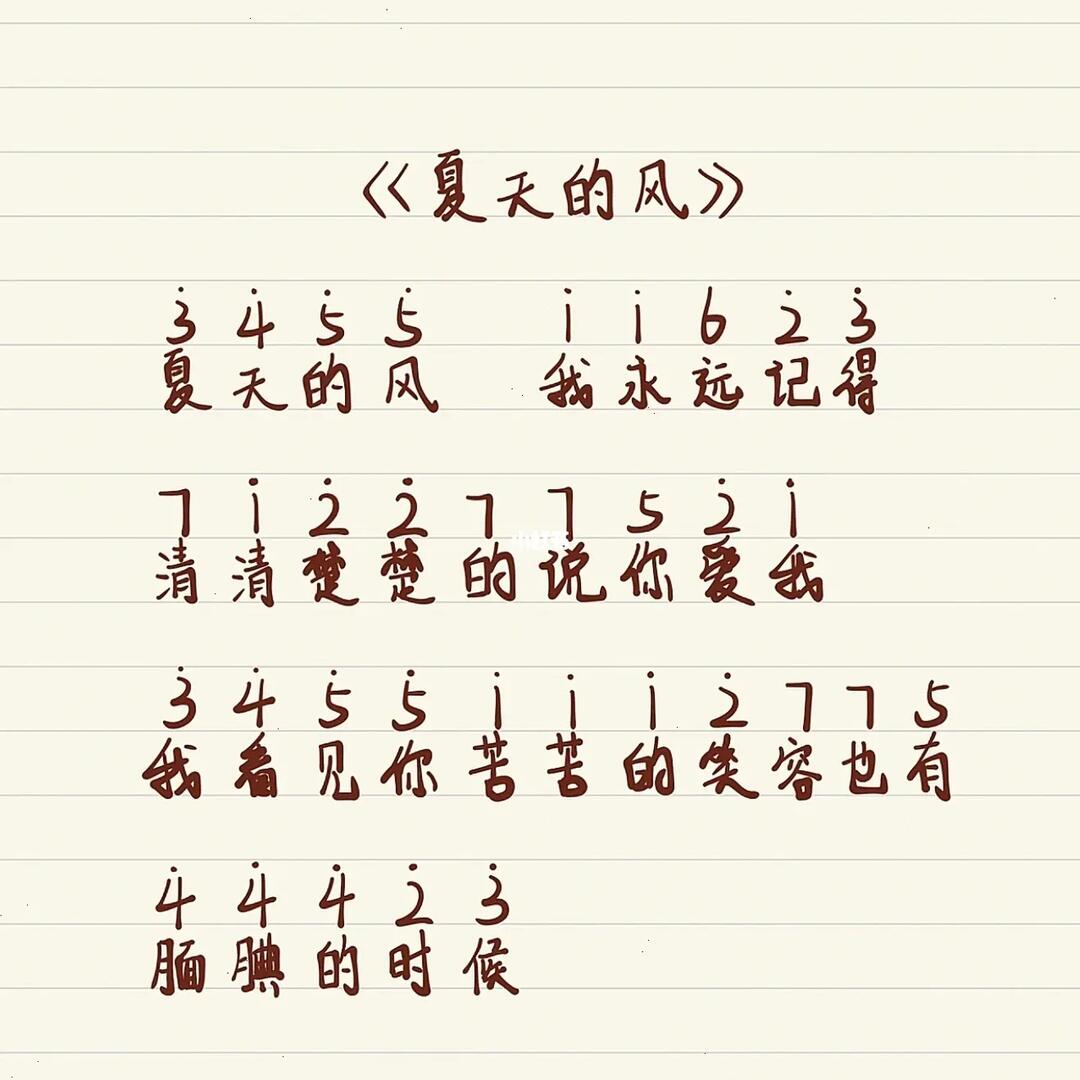 《夏天的风》
3̇ 4̇ 5̇ 5̇ 1̇ 1̇ 6 2̇ 3̇
夏天的风 我永远记得
7 1̇ 2̇ 2̇ 7 7 5 2̇ 1̇
清清楚楚的说你爱我
3̇ 4̇ 5̇ 5̇ 1̇ 1̇ 1̇ 2̇ 7 7 5
我看见你苦苦的笑容也有
4̇ 4̇ 4̇ 2̇ 3̇
腼腆的时候